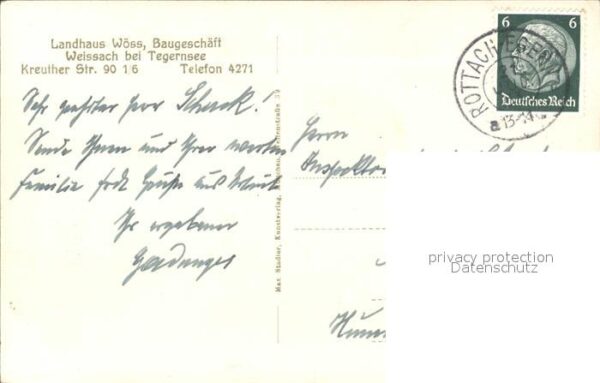 Landhaus Wöss, Baugeschäft
Weissach bei Tegernsee
Kreuther Str. 90 1/6 Telefon 4271
Sehr geehrter Herr Schenk!
Sende Ihnen und Ihrer werten
Familie frdl. Grüße aus
Ihr ergebener
Max Stadler, Kunstverlag, München,
6 6
Deutsches Reich
ROTTACH-EGERN
a 13-14
Herrn
Inspektor
privacy protection
Datenschutz